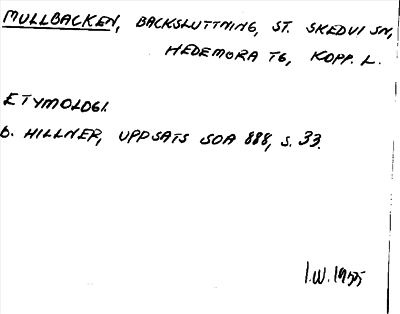 MULLBACKEN, BACKSLUTTNING, ST. SKEDVI SN,
HEDEMORA TG, KOPP. L.
ETYMOLOGI.
B. HILLNER, UPPSATS SOA 888, S. 33.
I.W. 1955